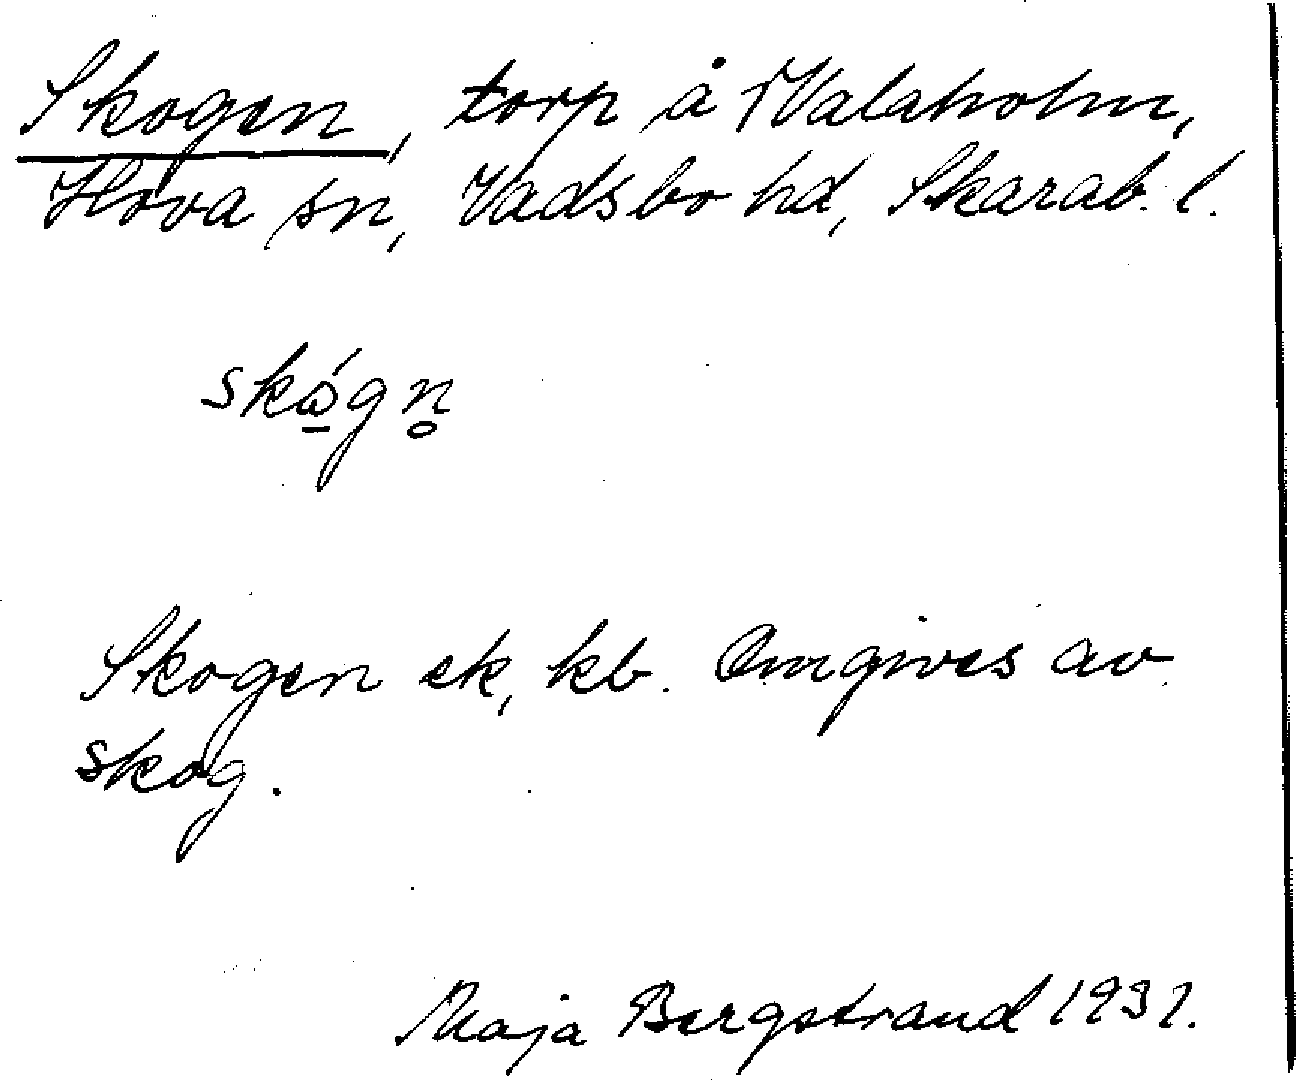 Skogen, torp å Walaholm,
Hova sn, Vadsbo hd, Skarab. l.
skɷ̱́gn̥
Skogen ek, kb. Omgives av
skog.
Maja Bergstrand 1931.